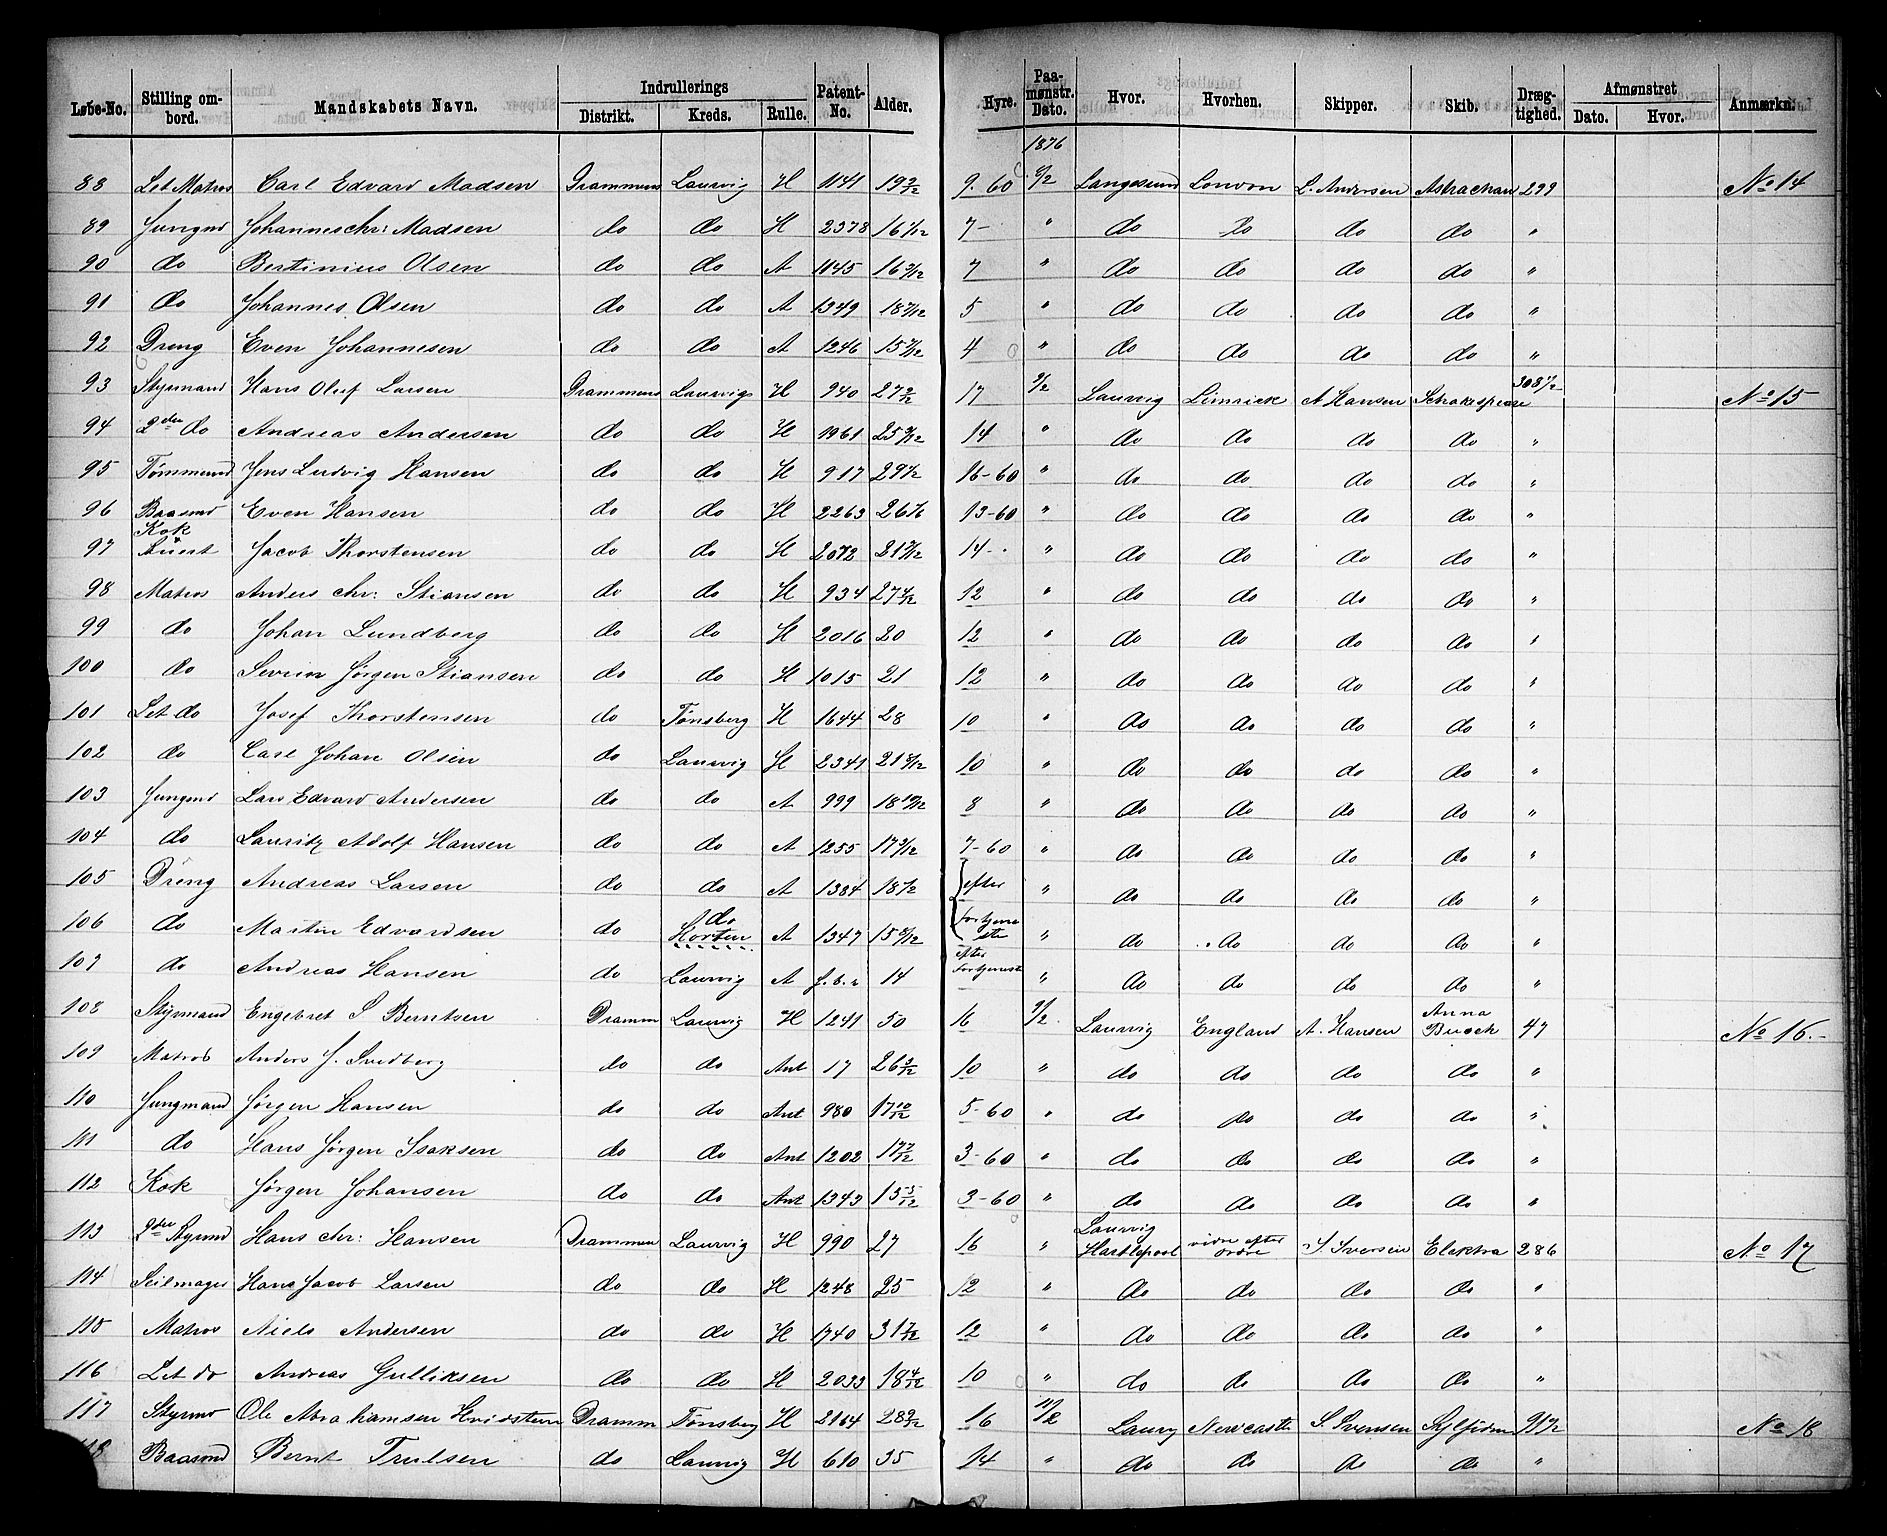 Løbe-No. Stilling ombord. Mandskabets Navn. Indrullerings Distrikt. Kreds. Rulle. Patent-No. Alder. Hyre. Paamønstr. Dato. Hvor. Hvorhen. Skipper. Skib. Drægtighed. Afmønstret Dato. Hvor. Anmærkn:
1876
88 Let Matros Carl Edvard Madsen Drammens Laurvig H 1141 19 9/12 9.60 9/2 Langesund London L. Andersen Astrachan 299 No 14
89 Jungmd Johannes chr: Madsen do do H 2378 16 1/12 7- " do Do do do "
90 do Bertinius Olsen do do A 1145 16 3/12 7 " do do do do "
91 do Johannes Olsen do do A 1349 18 7/12 5 " do do do do "
92 Dreng Even Johannesen do do A 1246 15 7/12 4 " do do do do "
93 Styrmand Hans Oluf Larsen Drammens Laurvigs H 940 27 9/12 17 9/2 Laurvig Limrick A Hansen Schakespeare 308 1/2 No 15
94 2den do Andreas Andersen do do H 1961 25 9/12 14 " do do do do "
95 Tømmmand Jens Ludvig Hansen do do H 917 29 1/2 16-60 " do do do do "
96 Baasmd Even Hansen do do H 2263 26 1/6 13-60 " do do do do "
97 Kok & Stuert Jacob Thorstensen do do H 2072 21 7/12 14- " do do do do "
98 Matros Anders chr: Stiansen do do H 934 27 4/12 12 " do do do do "
99 do Johan Lundberg do do H 2016 20 12 " do do do do "
100 do Severin Jørgen Stiansen do do H 1015 21 12 " do do do do "
101 Let do Josef Thorstensen do Tønsberg H 1644 28 10 " do do do do "
102 do Carl Johan Olsen do Laurvig H 2341 21 5/12 10 " do do do do "
103 Jungmd Lars Edvard Andersen do do A 999 18 10/12 8 " do do do do "
104 do Lauritz Adolf Hansen do do A 1255 17 9/12 7-60 " do do do do "
105 Dreng Andreas Larsen do do A 1384 18 1/2 efter " do do do do "
106 do Martin Edvardsen do do Horten A 1347 15 8/12 Fortjeneste " do do do do "
107 do Andreas Hansen do Laurvig A f.b.n 14 efter Fortjeneste " do do do do "
108 Styrmand Engebret S Berntsen Dramm Laurvig H 1241 50 16 9/2 Laurvig England A. Hansen Anna Busch 47 No 16.-
109 Matros Anders J. Svedberg do do Ant 17 26 3/12 10 " do do do do "
110 Jungmand Jørgen Hansen do do Ant 980 17 10/12 5-60 " do do do do "
111 do Hans Jørgen Isaksen do do Ant 1202 17 7/12 3-60 " do do do do "
112 Kok Jørgen Johansen do do Ant 1343 15 5/12 3-60 " do do do do "
113 2den Styrmd Hans chr: Hansen Drammen Laurvig H 990 27 16 " Laurvig Hartlepool vidre efter ordre S. Iversen Elektra 286 No 17
114 Seilmager Hans Jacob Larsen do do H 1248 25 12 " do do do do "
115 Matros Niels Andersen do do H 1740 31 7/12 12 " do do do do "
116 Let do Andreas Gulliksen do do H 2033 18 4/12 10 " do do do do "
117 Styrmd Ole Abrahamsen Hvidsteen Dramm Tønsberg H 2164 28 9/12 16 11/2 Laurv Newcastle S. Svensen 91 1/2 No 18
118 Baasmd Bernt Trulsen do Laurvig H 610 35 14 " do do do do "